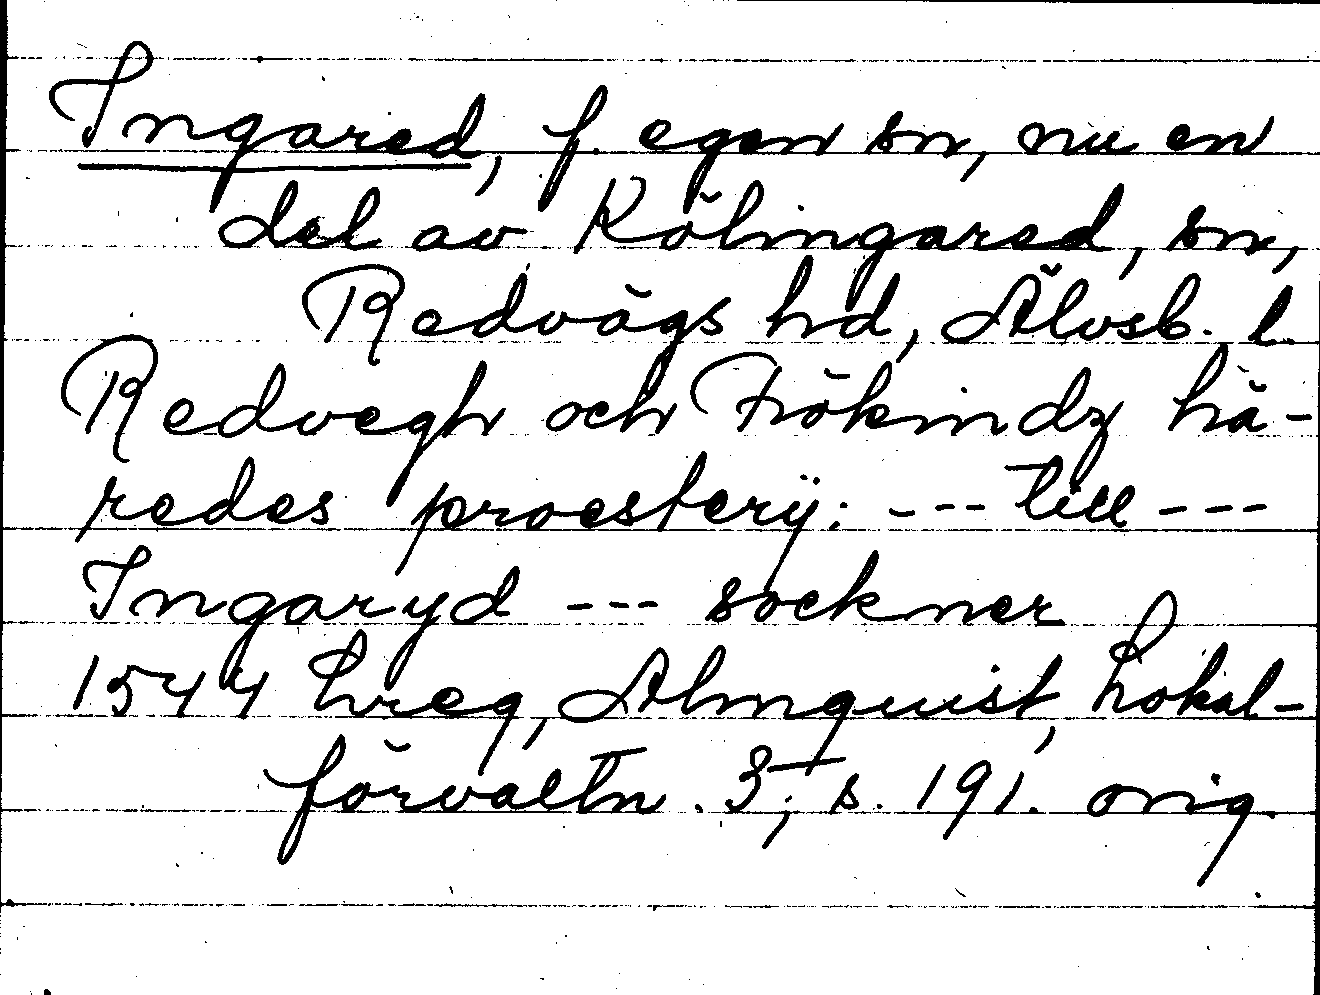 Ingared, f. egen sn, nu en
del av Kölingared, sn,
Redvägs hd, Älvsb. l.
Redvegh och Frökindz hä-
redes proesterÿ: --- till ---
Ingaryd --- sockner
1544 Lreg, Almquist, Lokal-
förvaltn. 3; s. 191. orig.